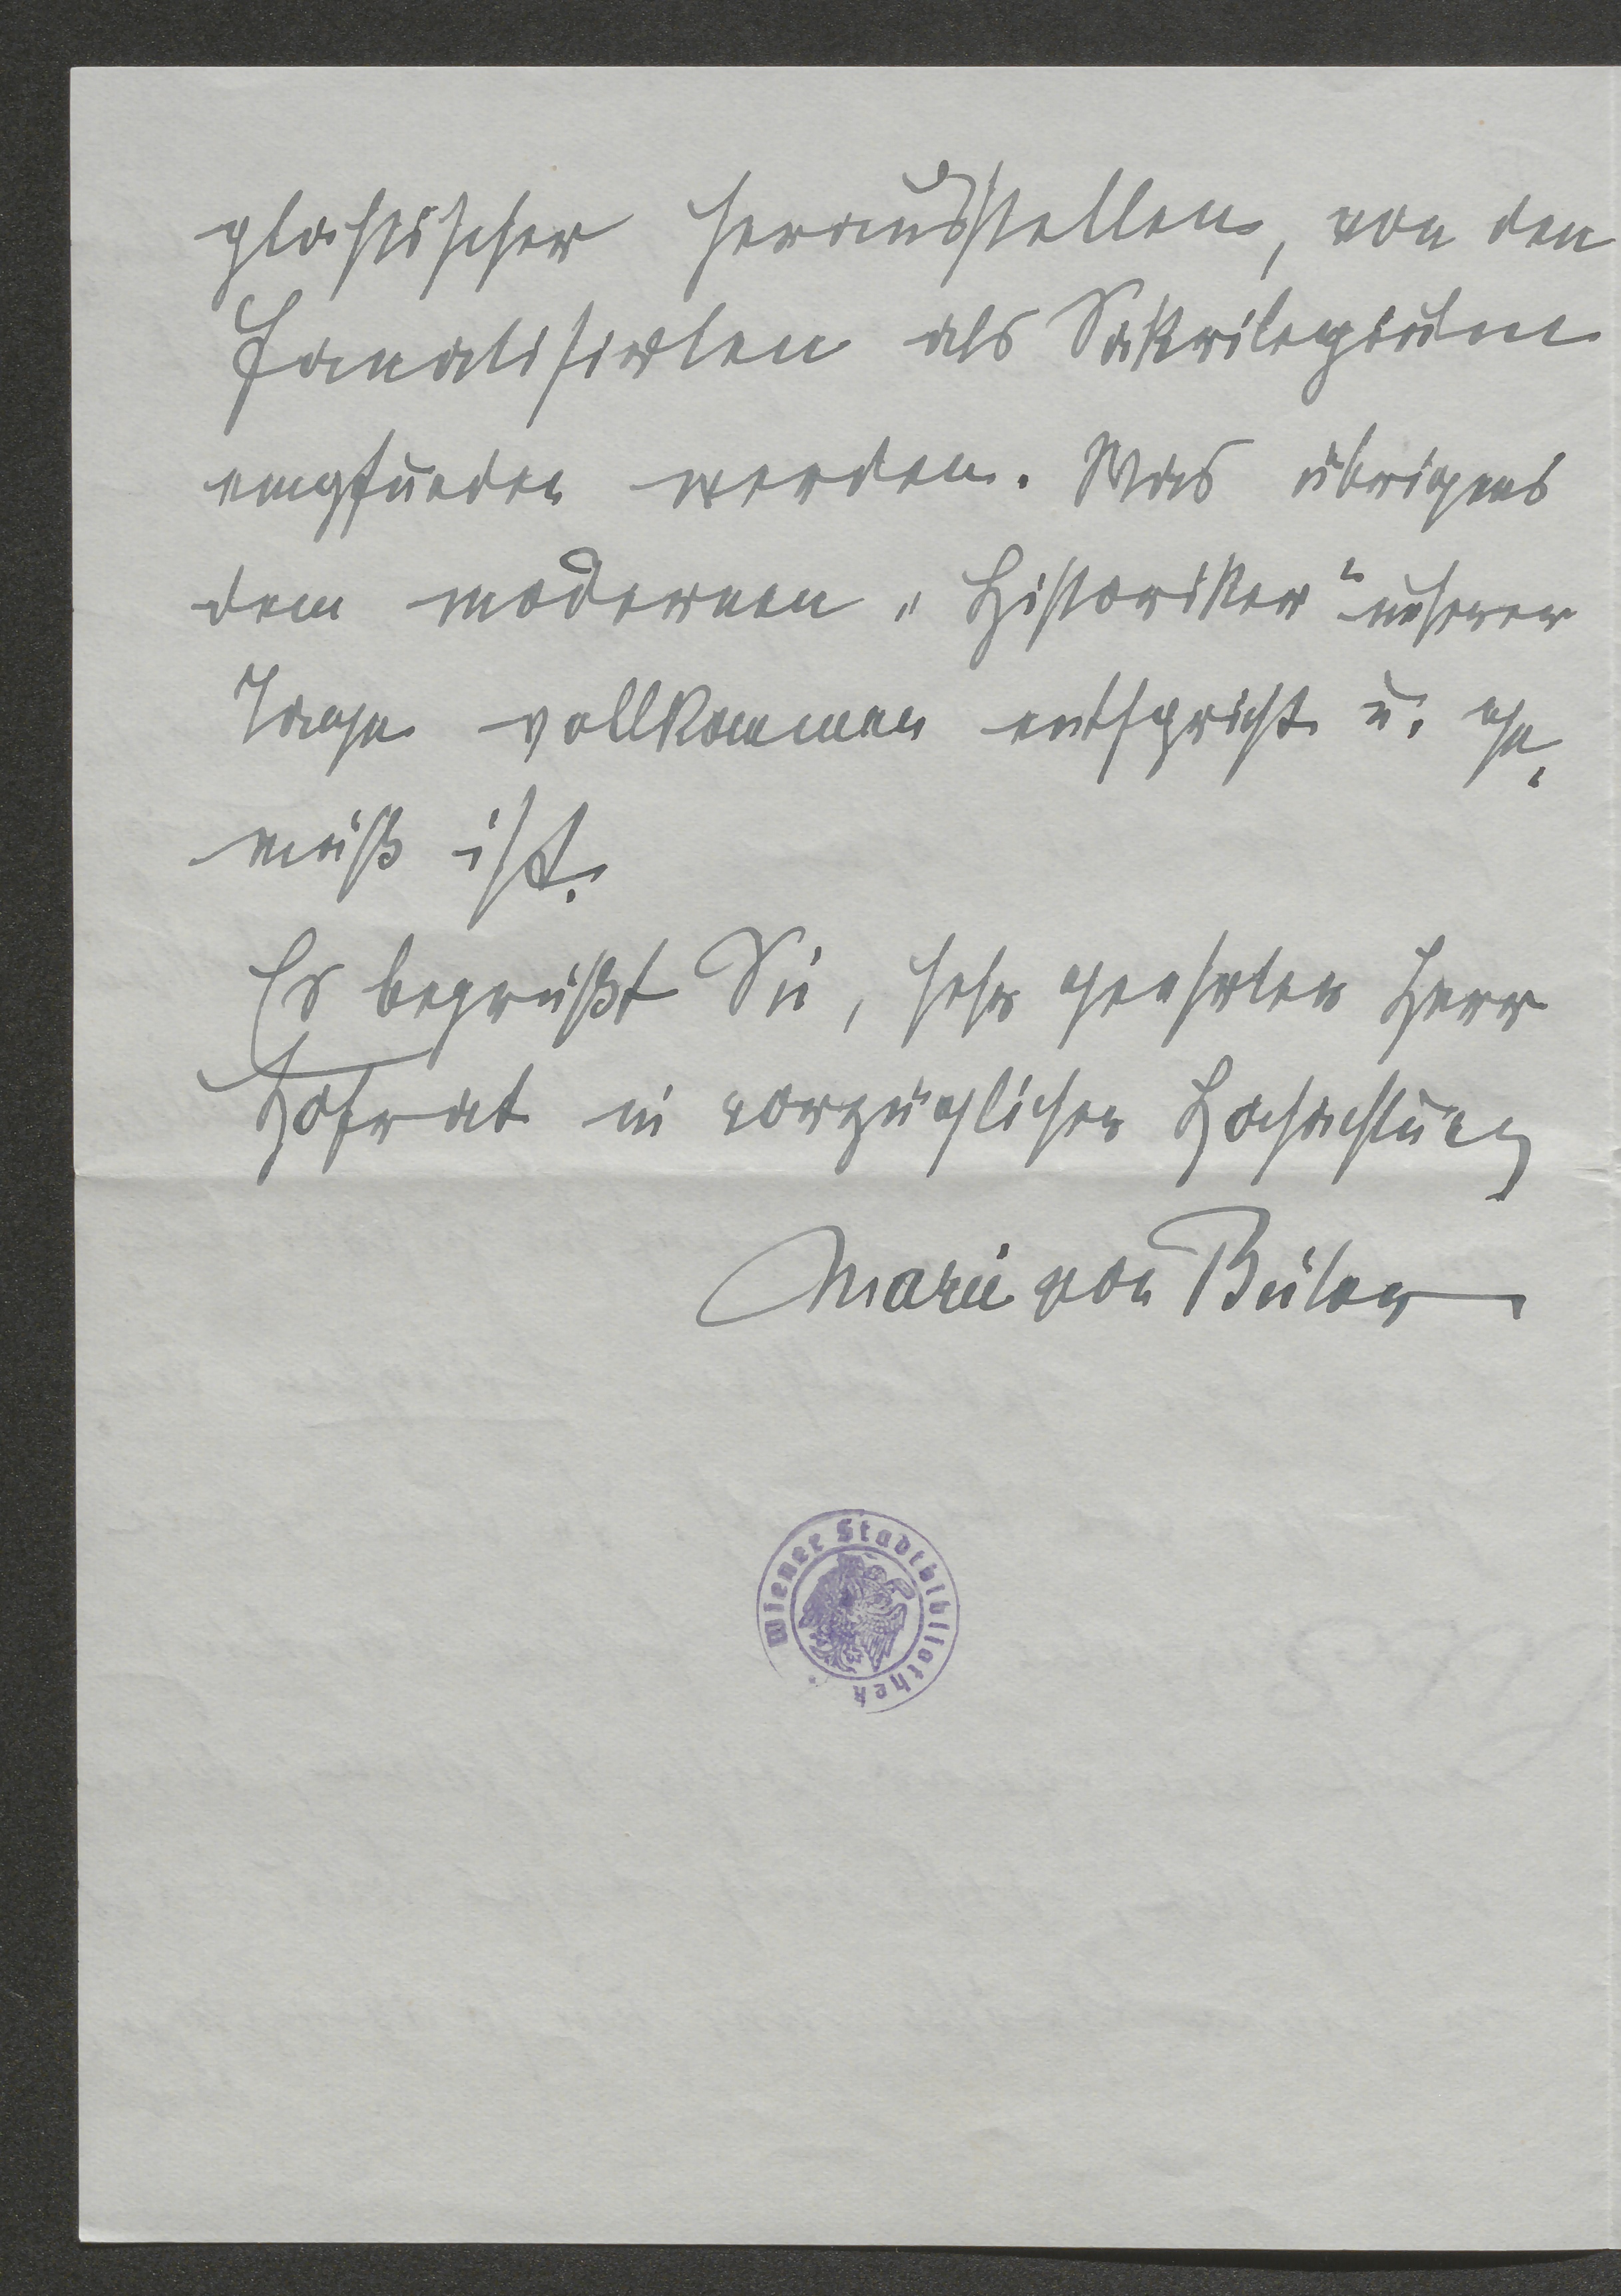 plastischer herausstellen, von den
Fanatisirten als Sakrilegium
empfunden werden. Was übrigens
dem modernen „Historiker“ unserer
Tage vollkommen entspricht u. ge„
mäß ist.
Es begrüßt Sie, sehr geehrter Herr
Hofrat in vorzüglicher Hochachtung
Marie von Bülow
Wiener Stadtbibliothek